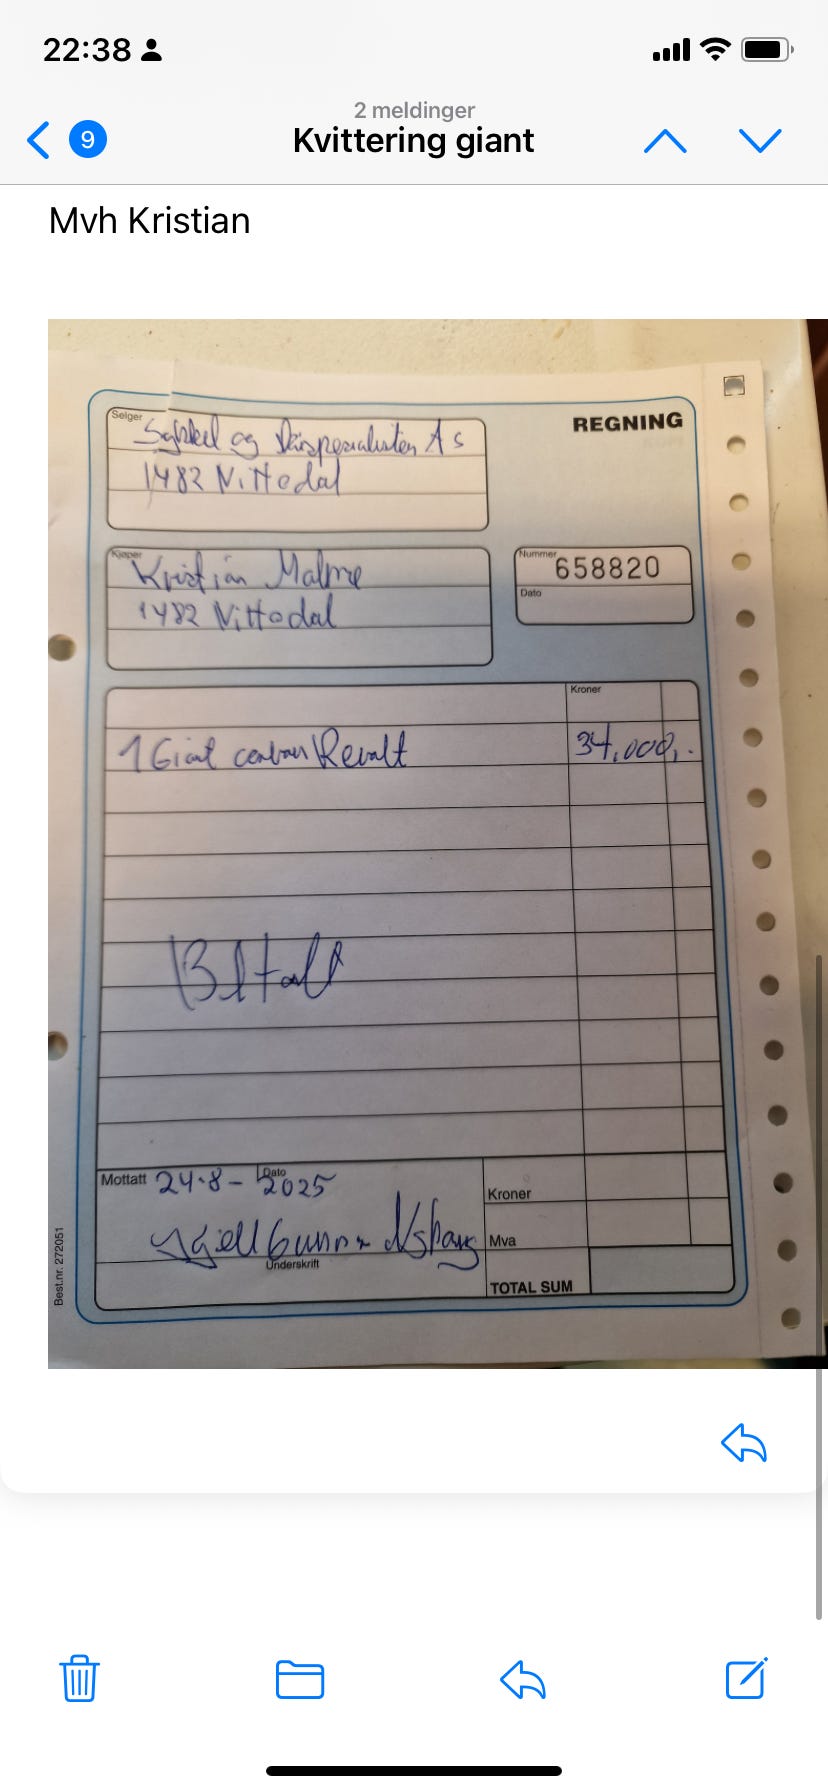 22:38
2 meldinger
9
Kvittering giant
Mvh Kristian
Selger
Sykkel og Skispesialisten AS
1482 Nittedal
REGNING
Kjøper
Kristian Malme
1482 Nittedal
Nummer
658820
Dato
Kroner
1 Giant carbon Revolt
34.000,-
Bltalt
Mottatt 24.8- Dato 2025
Kjell Gunnar
Underskrift
Kroner
Mva
TOTAL SUM
Best.nr. 272051